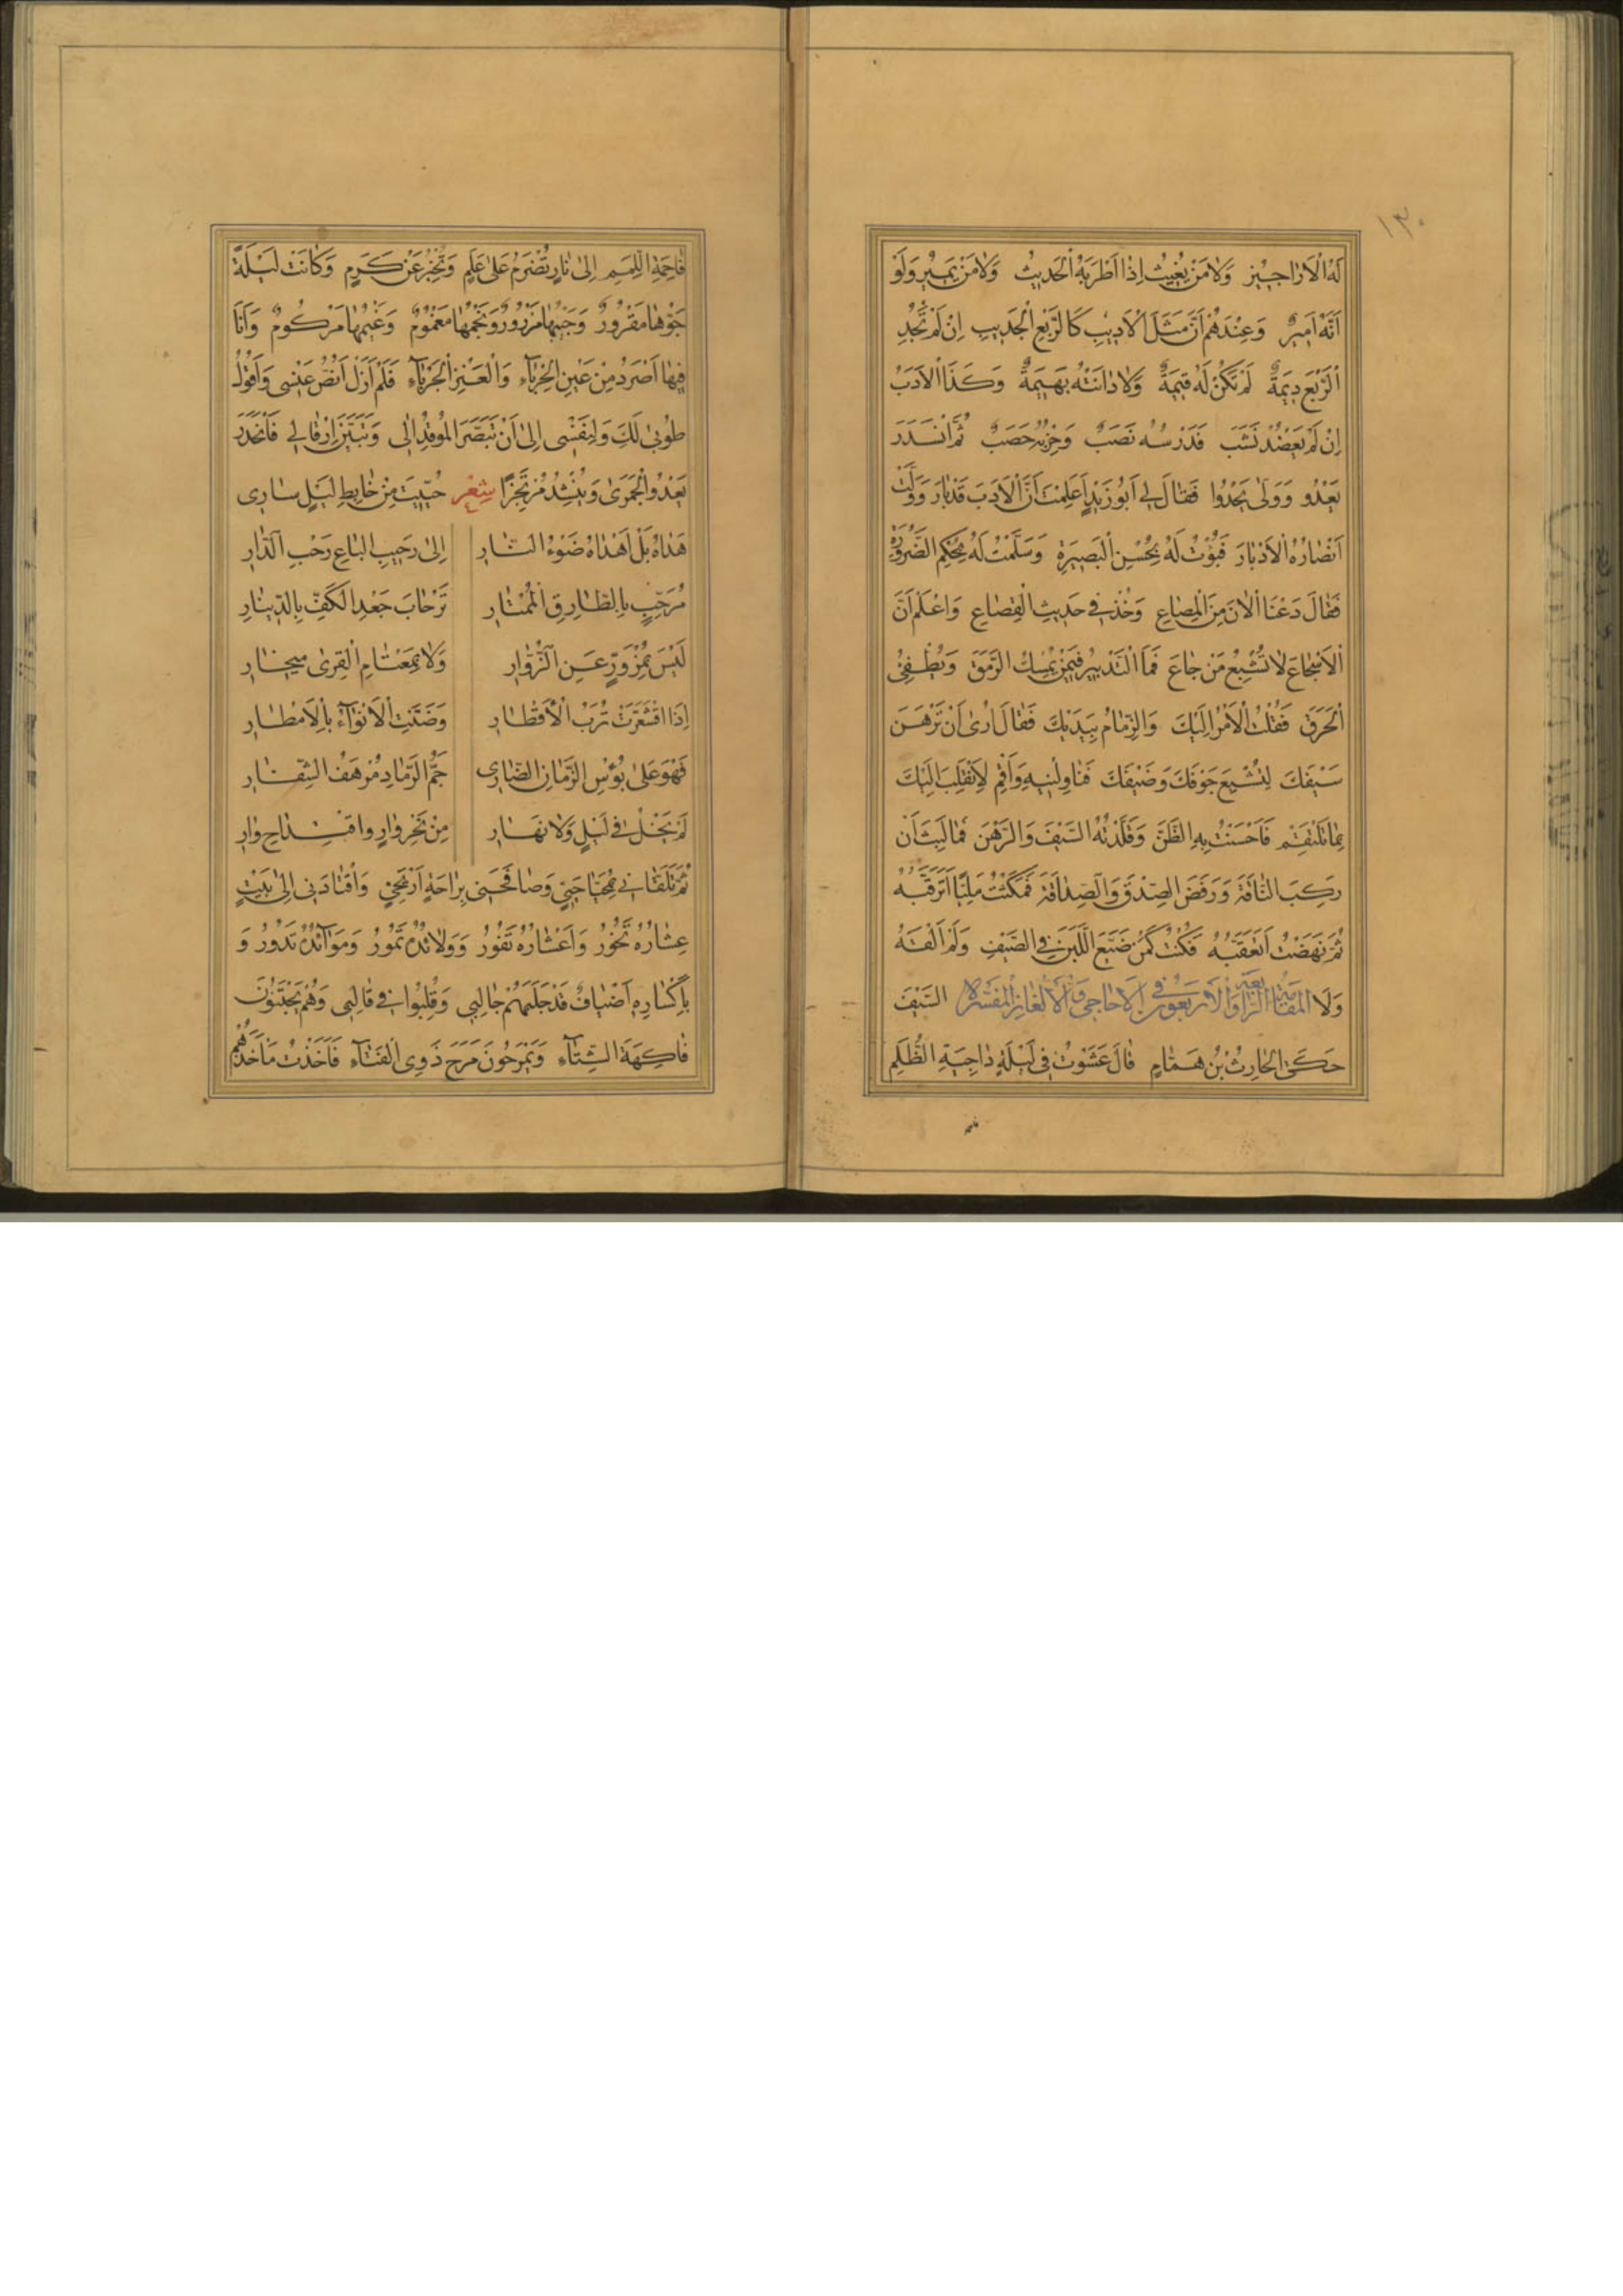 ١٣٠
لَهُ الْاَرَاجِيْزَ وَلَا مَنْ يُغِيْثُ اِذَا اَطْرَبَهُ الْحَدِيْثُ وَلَا مَنْ يَمِيْرُ وَلَوْ
اَنَّهُ اَمِيْرٌ وَعِنْدَهُمْ اَنَّ مَثَلَ الْاَدِيْبِ كَالرَّبْعِ الْجَدِيْبِ اِنْ لَمْ تَجُدِ
الرَّبْعَ دِيْمَةٌ لَمْ تَكُنْ لَهُ قِيْمَةٌ وَلَا دَانَتْهُ بَهِيْمَةٌ وَكَذَا الْاَدَبُ
اِنْ لَمْ يَعْضُدْهُ نَشَبٌ فَدَرْسُهُ نَصَبٌ وَحِزْبُهُ حَصَبٌ ثُمَّ انْسَدَرَ
يَعْدُو وَوَلَّى يَحْدُوا فَقَالَ لِي اَبُو زَيْدٍ اَعَلِمْتَ اَنَّ الْاَدَبَ قَدْ بَارَ وَوَلَّتْ
اَنْصَارُهُ الْاَدْبَارَ فَبُؤْتُ لَهُ بِحُسْنِ الْبَصِيْرَةِ وَسَلَّمْتُ لَهُ بِحُكْمِ الضَّرُوْرَةِ
فَقَالَ دَعْنَا الْاٰنَ مِنَ الْمِصَاعِ وَخُذْ فِي حَدِيْثِ الْقِصَاعِ وَاعْلَمْ اَنَّ
الْاَسْجَاعَ لَا تُشْبِعُ مَنْ جَاعَ فَمَا التَّدْبِيْرُ فِيْمَنْ يُمْسِكُ الرَّمَقَ وَيُطْفِئُ
الْحَرَقَ فَقُلْتُ الْاَمْرُ اِلَيْكَ وَالزِّمَامُ بِيَدَيْكَ فَقَالَ اَرٰى اَنْ تَرْهَنَ
سَيْفَكَ لِتُشْبِعَ جَوْفَكَ وَضَيْفَكَ فَنَاوِلْنِيْهِ وَاَقِمْ لِاَنْقَلِبَ اِلَيْكَ
بِمَا تَلْتَقِمُ فَاَحْسَنْتُ بِهِ الظَّنَّ وَقَلَّدْتُهُ السَّيْفَ وَالرَّهْنَ فَمَا لَبِثَ اَنْ
رَكِبَ النَّاقَةَ وَرَفَضَ الصِّدْقَ وَالصِّدَاقَةَ فَمَكَثْتُ مَلِيًّا اَتَرَقَّبُهُ
ثُمَّ نَهَضْتُ اَتَعَقَّبُهُ فَكُنْتُ كَمَنْ ضَيَّعَ اللَّبَنَ فِي الصَّيْفِ وَلَمْ اَلْقَهُ
وَلَا السَّيْفَ المَقَامَةُ الرَّابِعَةُ وَالْاَرْبَعُونَ فِي الْاَحَاجِي وَالْاَلْغَازِ الْمُفَسَّرَةِ
حَكَى الْحَارِثُ بْنُ هَمَّامٍ قَالَ عَشَوْتُ فِي لَيْلَةٍ دَاجِيَةِ الظُّلَمِ
فاحمة
فَاحِمَةِ اللِّمَمِ اِلٰى نَارٍ تُضْرَمُ عَلٰى عَلَمٍ وَتُخْبِرُ عَنْ كَرَمٍ وَكَانَتْ لَيْلَةً
جَوُّهَا مَقْرُوْرٌ وَجَيْبُهَا مَزْرُوْرٌ وَنَجْمُهَا مَغْمُوْمٌ وَغَيْمُهَا مَرْكُوْمٌ وَاَنَا
فِيْهَا اَصْرَدُ مِنْ عَيْنِ الْحِرْبَآءِ وَالْعَنْزِ الْجَرْبَآءِ فَلَمْ اَزَلْ اَنُصُّ عَنْسِي وَاَقُوْلُ
طُوْبٰى لَكِ وَلِنَفْسِي اِلٰى اَنْ تَبَصَّرَ الْمُوْقِدُ اٰلِي وَتَبَيَّنَ اِرْقَالِي فَانْحَدَرَ
يَعْدُو الْجَمَزٰى وَيُنْشِدُ مُرْتَجِزًا شِعْر حُيِّيْتَ مِنْ خَابِطِ لَيْلٍ سَارِي
هَدَاهُ بَلْ اَهْدَاهُ ضَوْءُ النَّارِ اِلٰى رَحِيْبِ الْبَاعِ رَحْبِ الدَّارِ
مُرَحِّبٍ بِالطَّارِقِ الْمُمْتَارِ تَرْحَابَ جَعْدِ الْكَفِّ بِالدِّيْنَارِ
لَيْسَ بِمُزْوَرٍّ عَنِ الزُّوَّارِ وَلَا بِمِعْتَامِ الْقِرٰى مِيْخَارِ
اِذَا اقْشَعَرَّتْ تُرَبُ الْاَقْطَارِ وَضَنَّتِ الْاَنْوَآءُ بِالْاَمْطَارِ
فَهْوَ عَلٰى بُؤْسِ الزَّمَانِ الضَّارِي جَمُّ الرَّمَادِ مُرْهَفُ الشِّفَارِ
لَمْ يَخْلُ فِي لَيْلٍ وَلَا نَهَارِ مِنْ نَحْرِ وَارٍ وَاقْتِدَاحِ وَارِ
ثُمَّ تَلَقَّانِي بِمُحَيَّا حَيِيٍّ وَصَافَحَنِي بِرَاحَةِ اَرْيَحِيٍّ وَاقْتَادَنِي اِلٰى بَيْتٍ
عِشَارُهُ تَخُوْرُ وَاَعْشَارُهُ تَفُوْرُ وَوَلَائِدُهُ تَمُوْرُ وَمَوَآئِدُهُ تَدُوْرُ وَ
بِاَكْسَارِهِ اَضْيَافٌ قَدْ جَلَبَهُمْ جَالِبِي وَقُلِّبُوا فِي قَالَبِي وَهُمْ يَجْتَنُوْنَ
فَاكِهَةَ الشِّتَآءِ وَيَمْرَحُوْنَ مَرَحَ ذَوِي الْفَتَآءِ فَاَخَذْتُ مَاْخَذَهُمْ